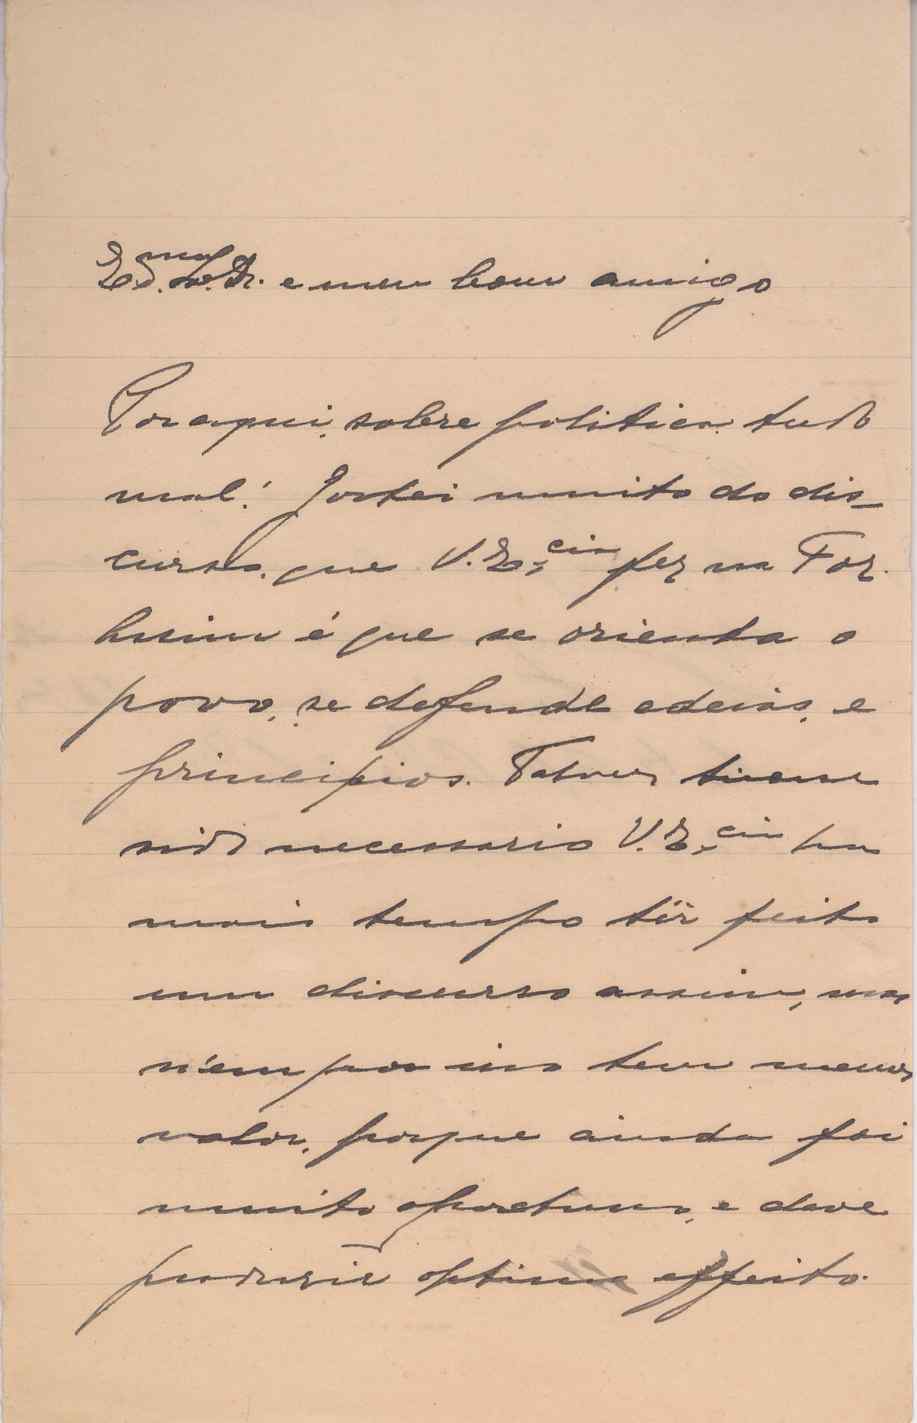 Ex.mo Sr. Dr. e meu bom amigo
Por aqui, sobre politica tudo
mal! Gostei muito do dis-
curso, que V. Ex.cia fez na Foz.
Assim é que se orienta o
povo, se defende edeias, e
principios. Talvez tivesse
sido necessario V. Ex.cia ha
mais tempo têr feito
um discurso assim, mas
n'em por isso tem menos
valor, porque ainda foi
muito oportuno, e deve
produzir optimo effeito.